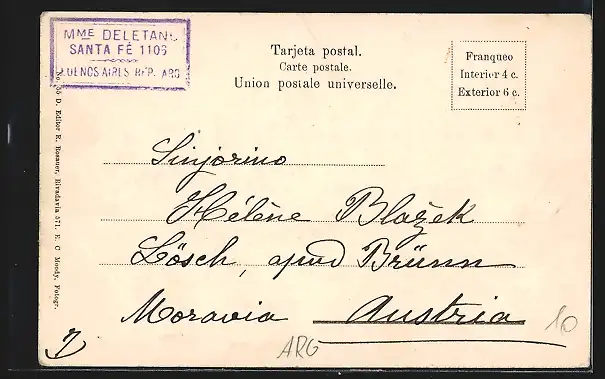 MME DELETANG
SANTA FÉ 1106
BUENOS AIRES REP. ARG
Tarjeta postal.
Carte postale.
Union postale universelle.
Franqueo
Interior 4 c.
Exterior 6 c.
Editor R. Rosauer, Rivadavia 571. E. C. Moody, Fotogr.
Sinjorino
Hélène Blažek
Lösch, apud Brünn
Moravia Austria
10
ARG